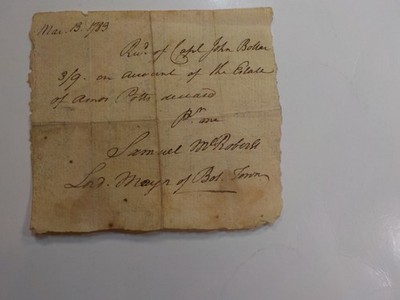 Mar. 13. 1783
Rd. of Capt John Boller
3/9. on account of the Estate
of Amos Potts deceasd
Pr me
Samuel McRoberts
Lord Mayr of Bos. Town